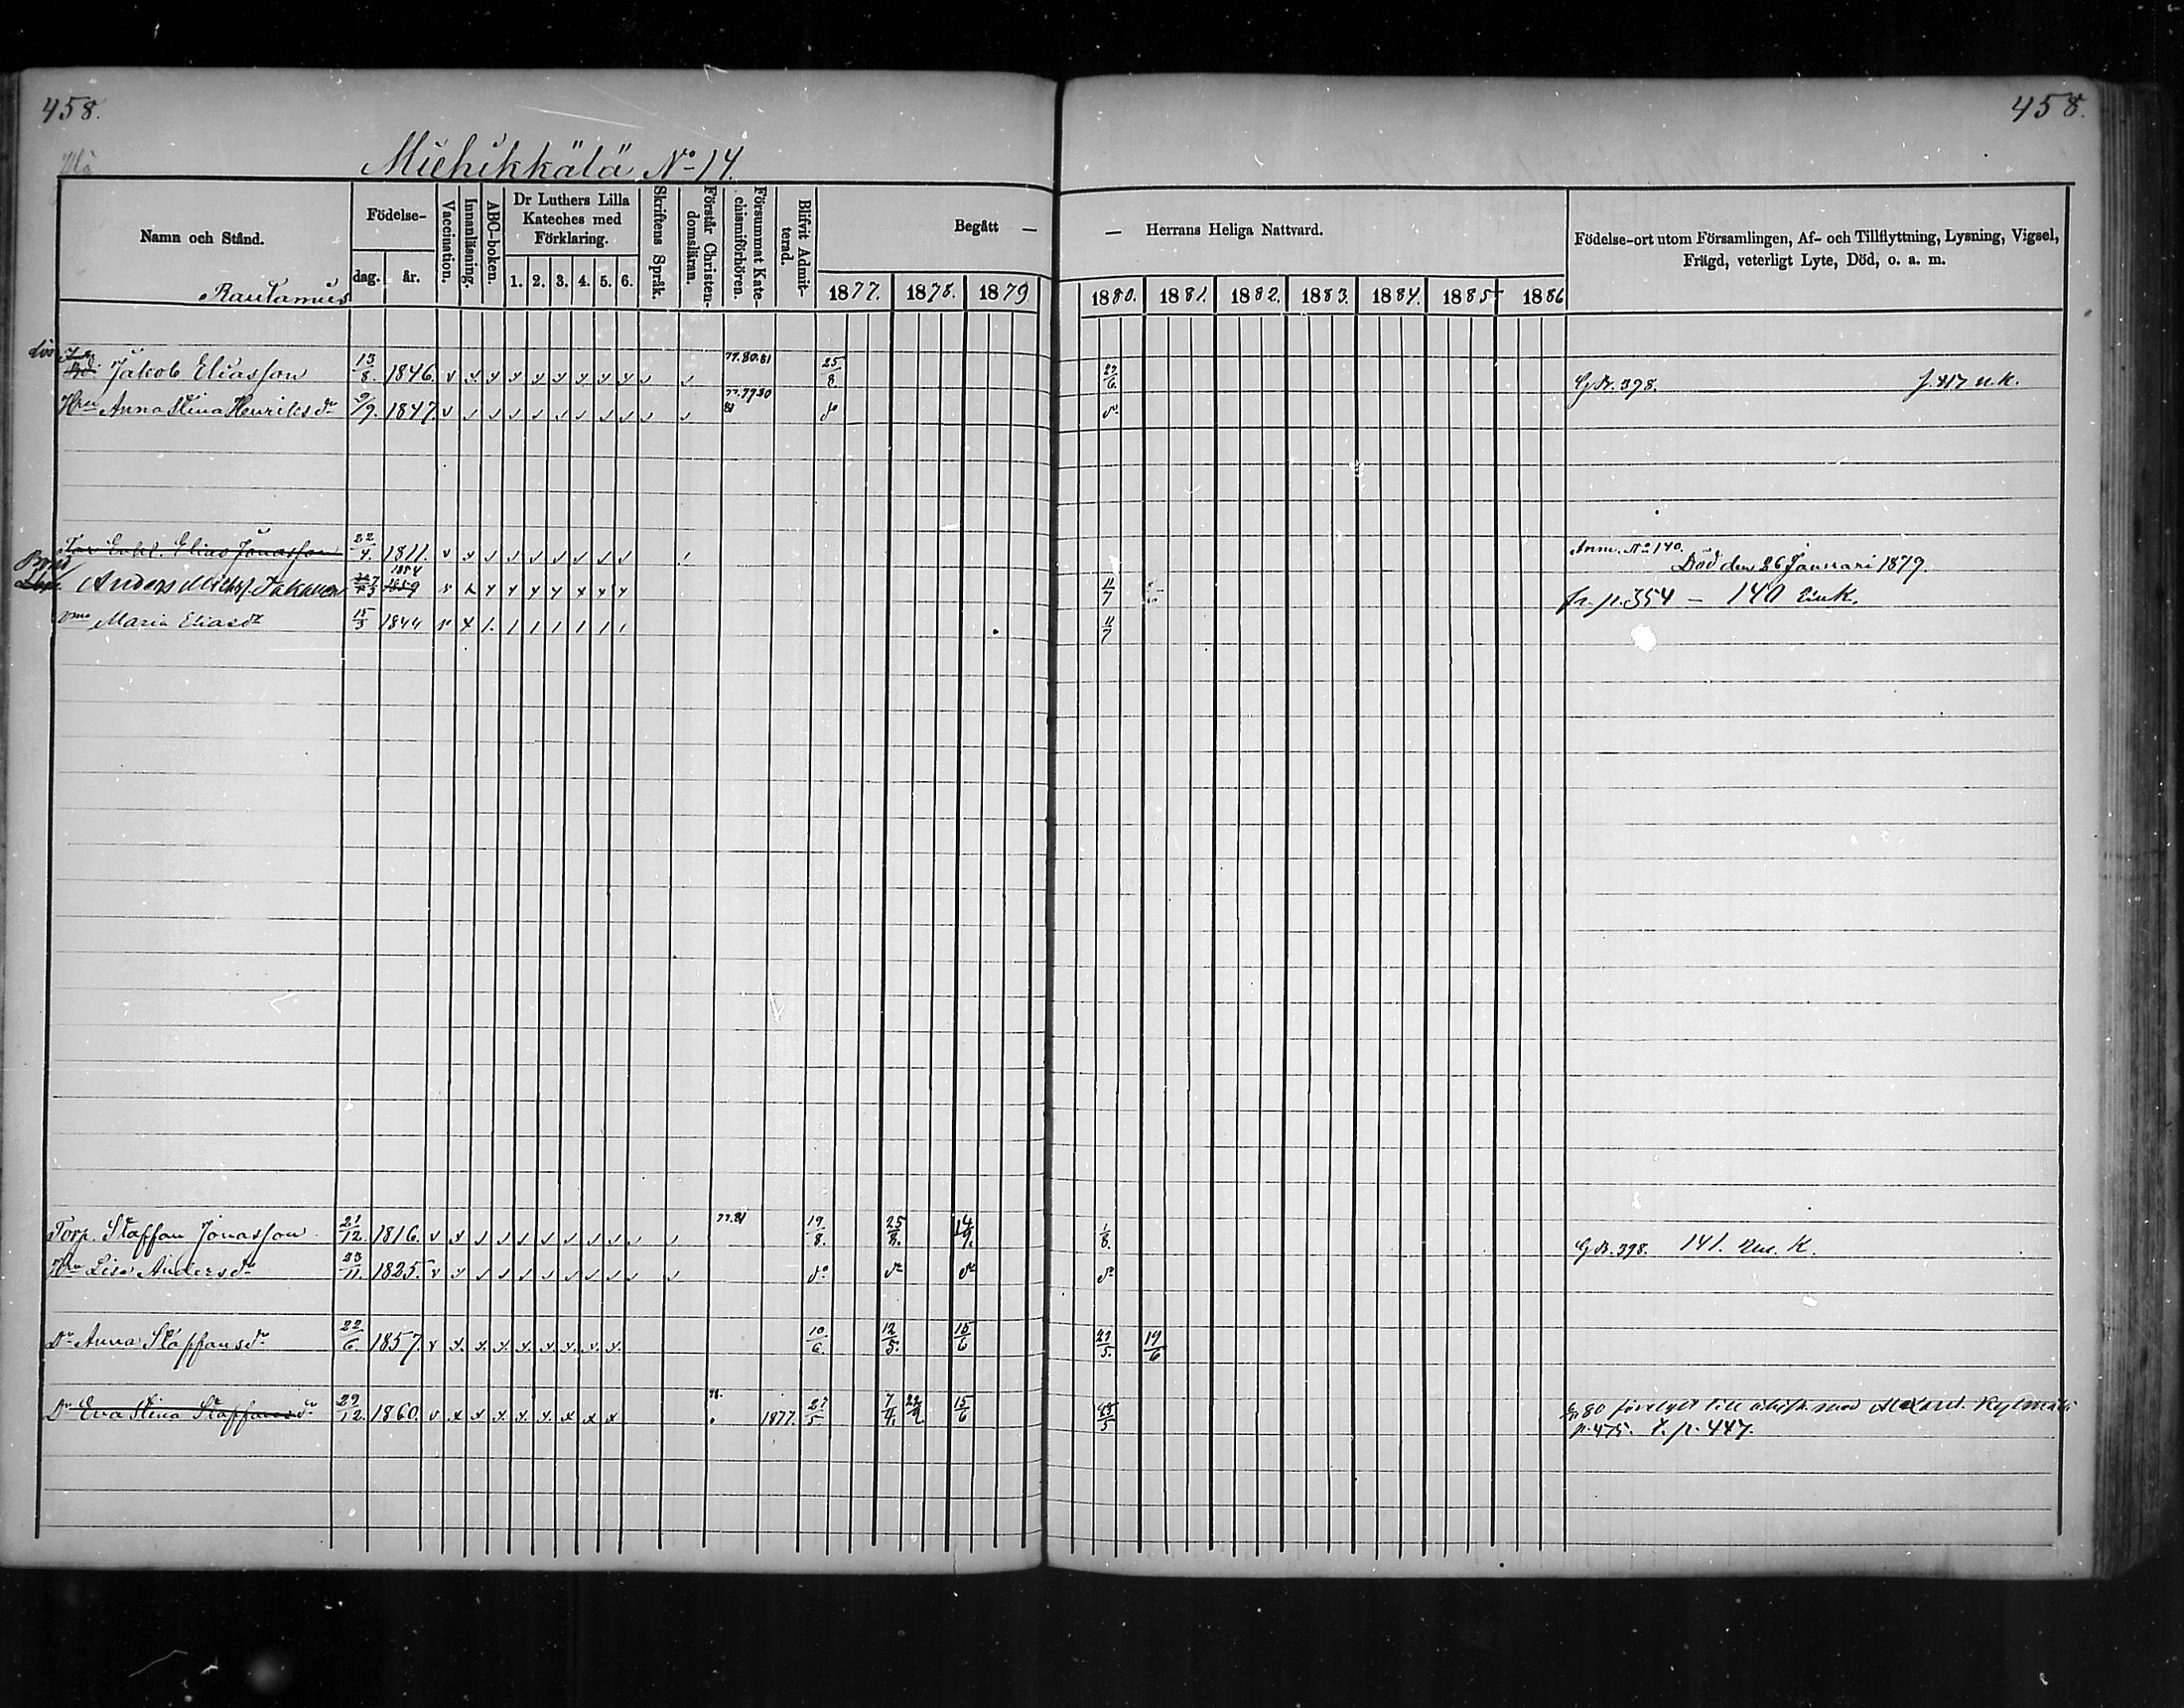 458.
458.
Miehikkälä No 14.
Namn och Stånd.
Födelse-
dag. år.
Vaccination.
Innanläsning.
ABC-boken.
Dr Luthers Lilla Kateches med Förklaring.
1. 2. 3. 4. 5. 6.
Skriftens Språk.
Förstår Christen-domsläran.
Försummat Kate-chismiförhören.
Blifvit Admit-terad.
Begått —
— Herrans Heliga Nattvard.
Födelse-ort utom Församlingen, Af- och Tillflyttning, Lysning, Vigsel, Frägd, veterligt Lyte, Död, o. a. m.
1877. 1878. 1879 1880. 1881. 1882. 1883. 1884. 1885 1886
Rautamies
Jakob Eliasson 13/8. 1846. 77.80.81 25/8 27/6. 398. f. 417 u.k.
Hru Anna Stina Henriksdr 9/9. 1847. 77.79.80 81 do do
Elias Jonasson 22/4. 1811. Anm. No 140. Död den 26 Januari 1879.
Bond Anders Michelss. Pakanen 1859 1854 11/7 fr. p. 354 — 140 Uuk.
Maria Eliasdr 15/3 1844 11/7
Torp. Staffan Jonasson 21/12. 1816. 77.81 19/8. 25/8. 14/9. 1/8. 398. 141. Uu. K.
Hru Lisa Andersdr 23/11 1825. do do do do
Dr Anna Staffansdr 22/6 1857. 10/6. 12/5. 15/6 29/5. 19/6
Dr Eva Stina Staffansdr 29/12. 1860. 78. 1877. 27/5 7/4. 15/6 80 till med Alexand.
p. 475. t. p. 447.